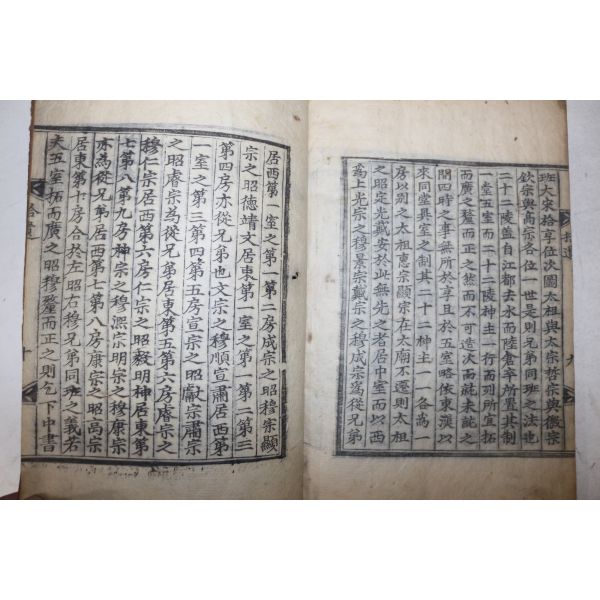 班大宋祫享位次圖太祖與太宗哲宗與徽宗
欽宗與高宗各位一世是則兄弟同班之法也
二十二陵蓋自江都去水而陸倉卒所置其制
一堂五室而二十二陵神主一行而列所宜拓
而廣之釐而正之然而不可造次而就未訛之
間四時之事無所於享且於五室略依東漢以
來同堂異室之制其二十二神主一一各爲一
房以別之太祖惠宗顯宗在太廟不遷則太祖
之昭定光戴安於此無先之者居中室而以西
爲上光宗之穆景宗戴宗之穆成宗爲從兄弟
居西第一室之第一第二房成宗之昭穆宗顯
宗之昭德靖文居東第一室之第一第二第三
第四房亦從兄弟也文宗之穆順宣肅居西第
一室之第三第四第五房宣宗之昭獻宗肅宗
之昭睿宗爲從兄弟居東第五第六房睿宗之
穆仁宗居西第六房仁宗之昭毅明神居東第
七第八第九房神宗之穆熙宗明宗之穆康宗
亦爲從兄弟居西第七第八房康宗之昭高宗
居東第十房合於左昭右穆兄弟同班之義若
夫五室拓而廣之昭穆釐而正之則乞下中書
拾遺 十